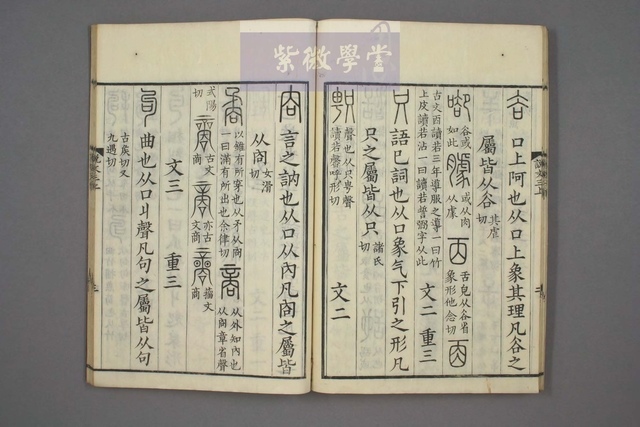 紫微學堂
谷 口上阿也从口上象其理凡谷之
屬皆从谷 其虐切
谷或如此 臄 或从肉从豦 㐁 舌皃从谷省象形他念切 㐁
古文㐁讀若三年導服之導一曰竹上皮讀若沾一曰讀若誓弼字从此 文二 重三
只 語已詞也从口象气下引之形凡
只之屬皆从只 諸氏切
聲也从只甹聲讀若聲呼形切 文二
㕯 言之訥也从口从內凡㕯之屬皆
从㕯 女滑切
矞 以錐有所穿也从矛从㕯一曰滿有所出也余律切 商 从外知內也从㕯章省聲
式陽切 古文商 亦古文商 籒文商
文三 重三
句 曲也从口丩聲凡句之屬皆从句
古矦切又九遇切